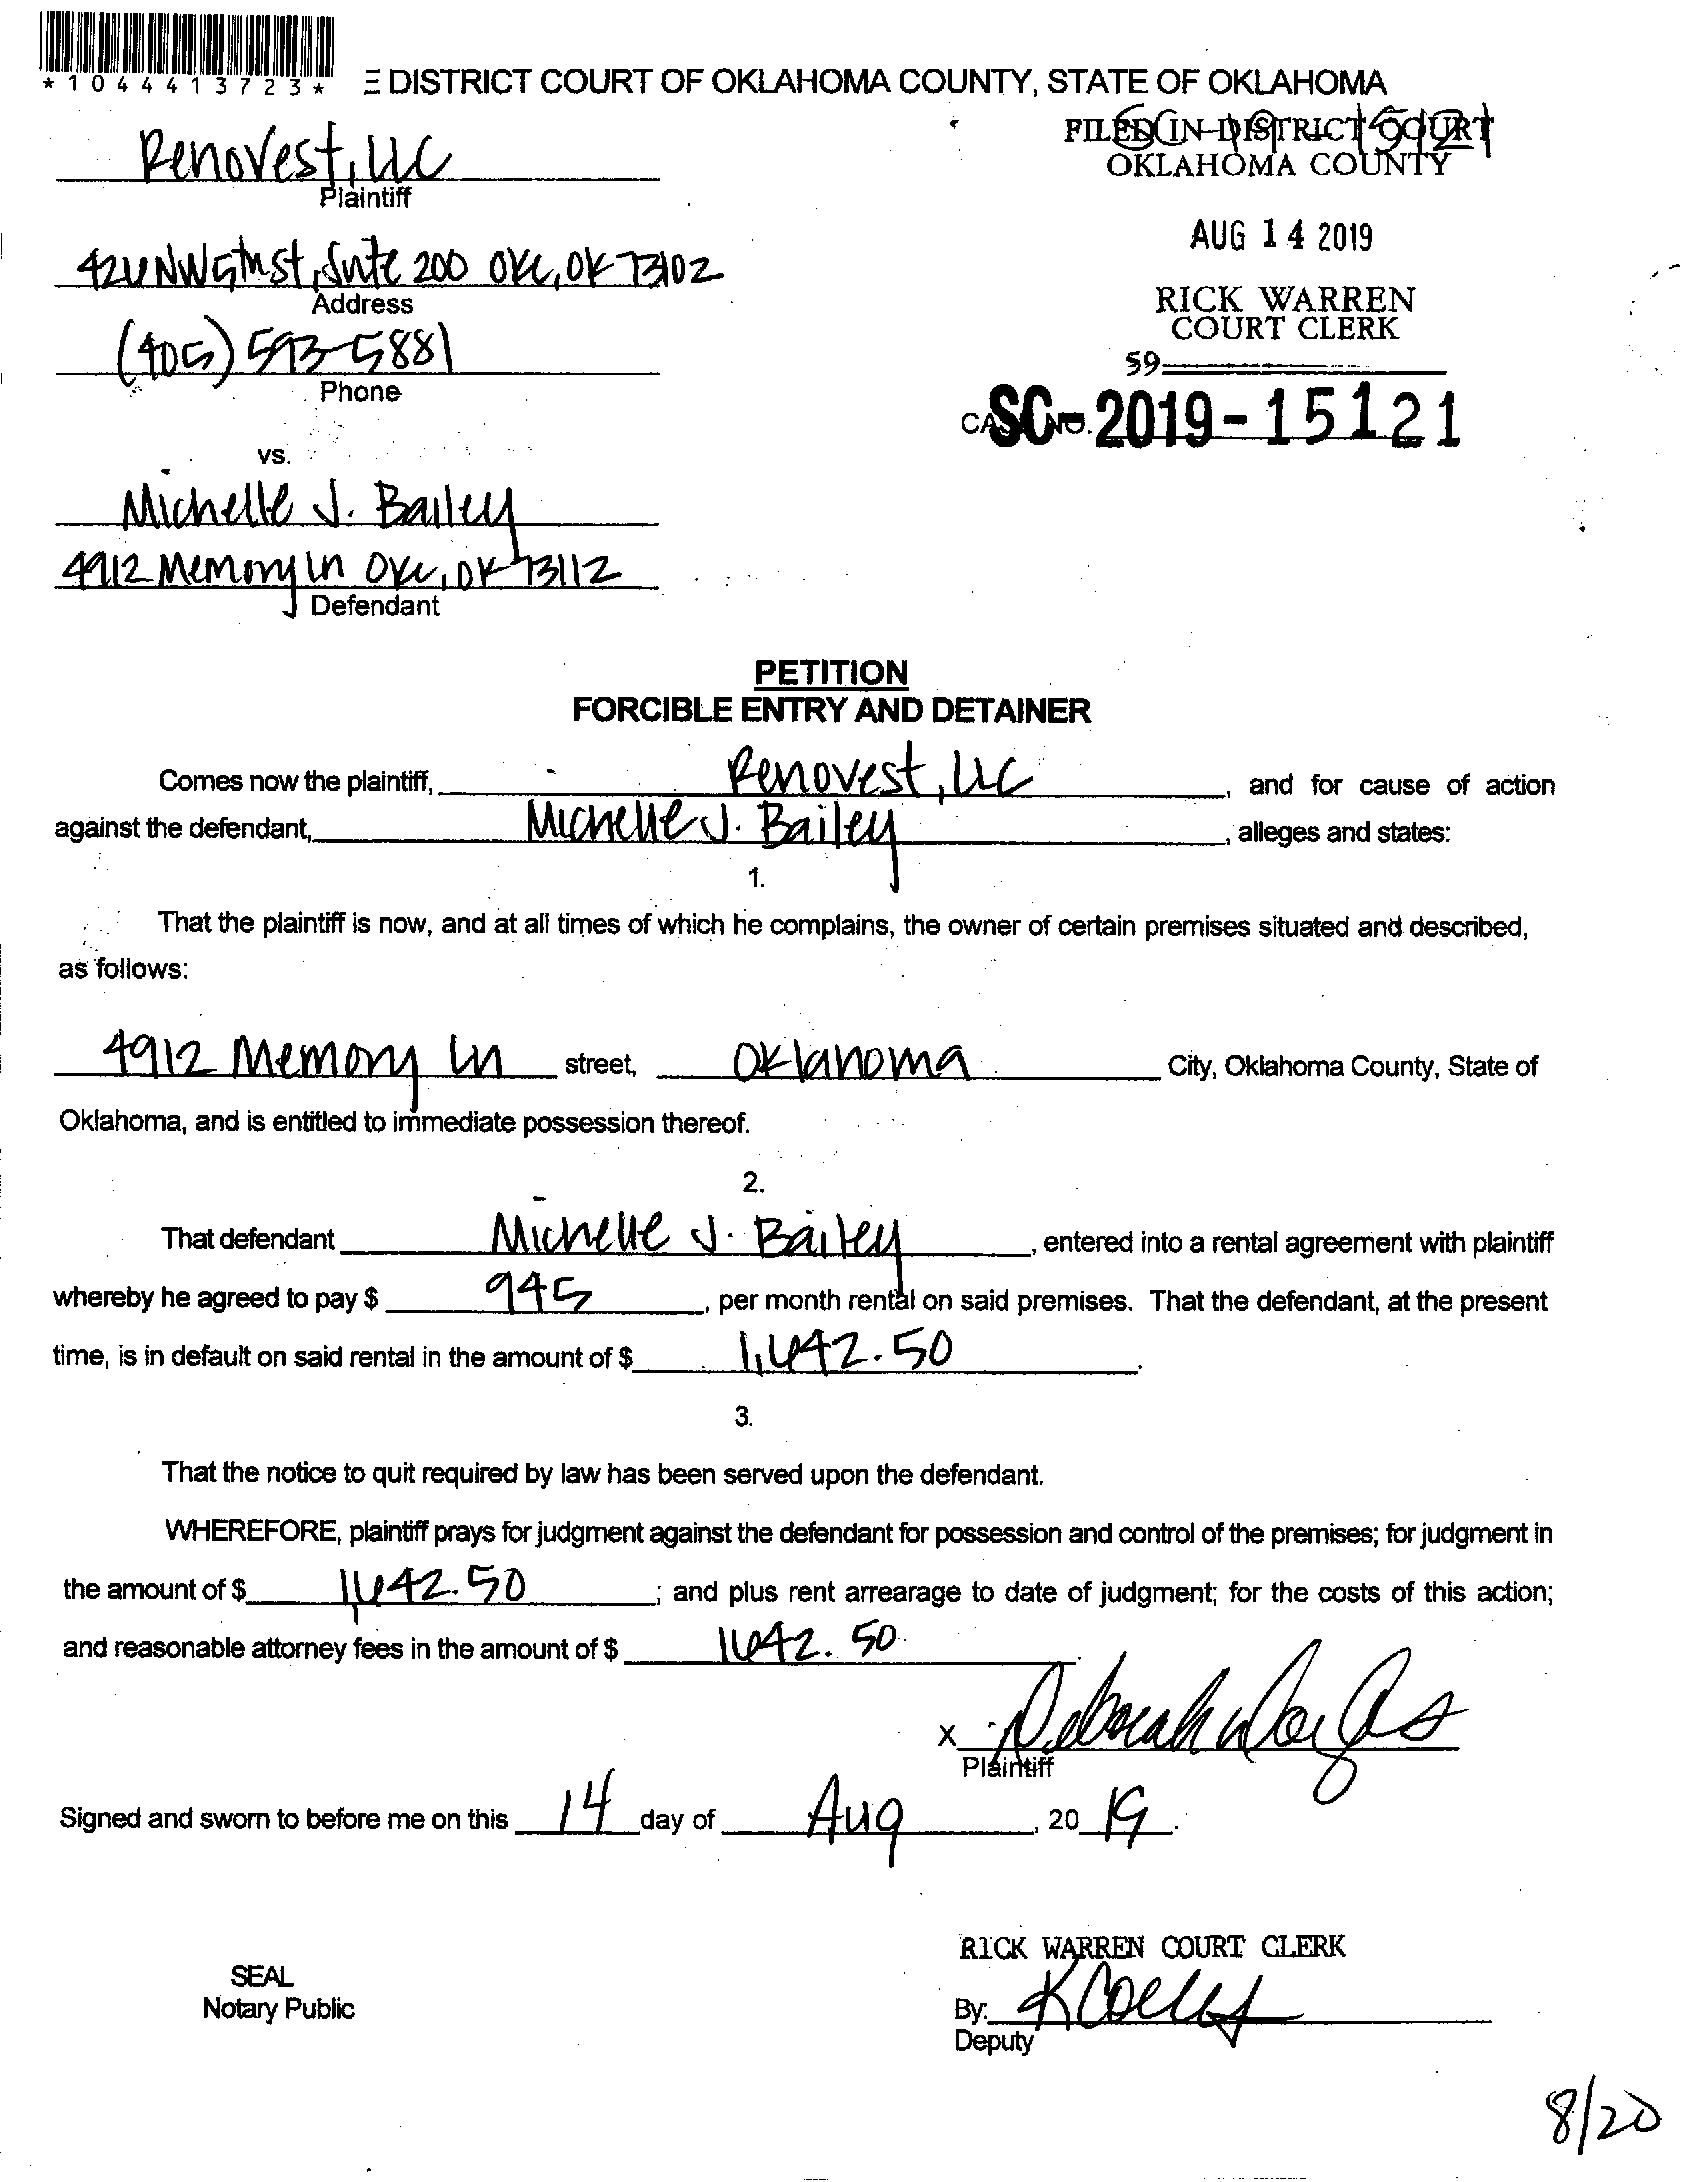 *1044413723*
E DISTRICT COURT OF OKLAHOMA COUNTY, STATE OF OKLAHOMA
SC-19-15121
FILED IN DISTRICT COURT
OKLAHOMA COUNTY
Renovest, LLC
Plaintiff
AUG 14 2019
NW 5th St, Suite 200 OKC, OK 73102
Address
RICK WARREN
COURT CLERK
(405) 593-5881
Phone
59
CASE NO. SC-2019-15121
vs.
Michelle J. Bailey
4912 Memory Ln OKC, OK 73112
Defendant
PETITION
FORCIBLE ENTRY AND DETAINER
Comes now the plaintiff, Renovest, LLC, and for cause of action
against the defendant, Michelle J. Bailey, alleges and states:
1.
That the plaintiff is now, and at all times of which he complains, the owner of certain premises situated and described,
as follows:
4912 Memory Ln street, Oklahoma City, Oklahoma County, State of
Oklahoma, and is entitled to immediate possession thereof.
2.
That defendant Michelle J. Bailey, entered into a rental agreement with plaintiff
whereby he agreed to pay $ 945, per month rental on said premises. That the defendant, at the present
time, is in default on said rental in the amount of $ 1,642.50.
3.
That the notice to quit required by law has been served upon the defendant.
WHEREFORE, plaintiff prays for judgment against the defendant for possession and control of the premises; for judgment in
the amount of $ 1,642.50; and plus rent arrearage to date of judgment; for the costs of this action;
and reasonable attorney fees in the amount of $ 1642.50.
X Deborah
Plaintiff
Signed and sworn to before me on this 14 day of Aug, 2019.
RICK WARREN COURT CLERK
SEAL
Notary Public
By:
Deputy
8/20